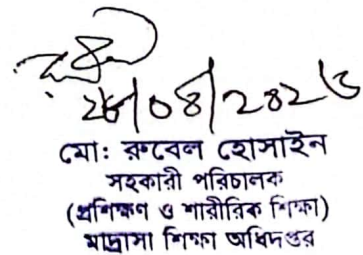 মো: রুবেল হোসাইন
সহকারী পরিচালক
(প্রশিক্ষণ ও শারীরিক শিক্ষা)
মাদ্রাসা শিক্ষা অধিদপ্তর